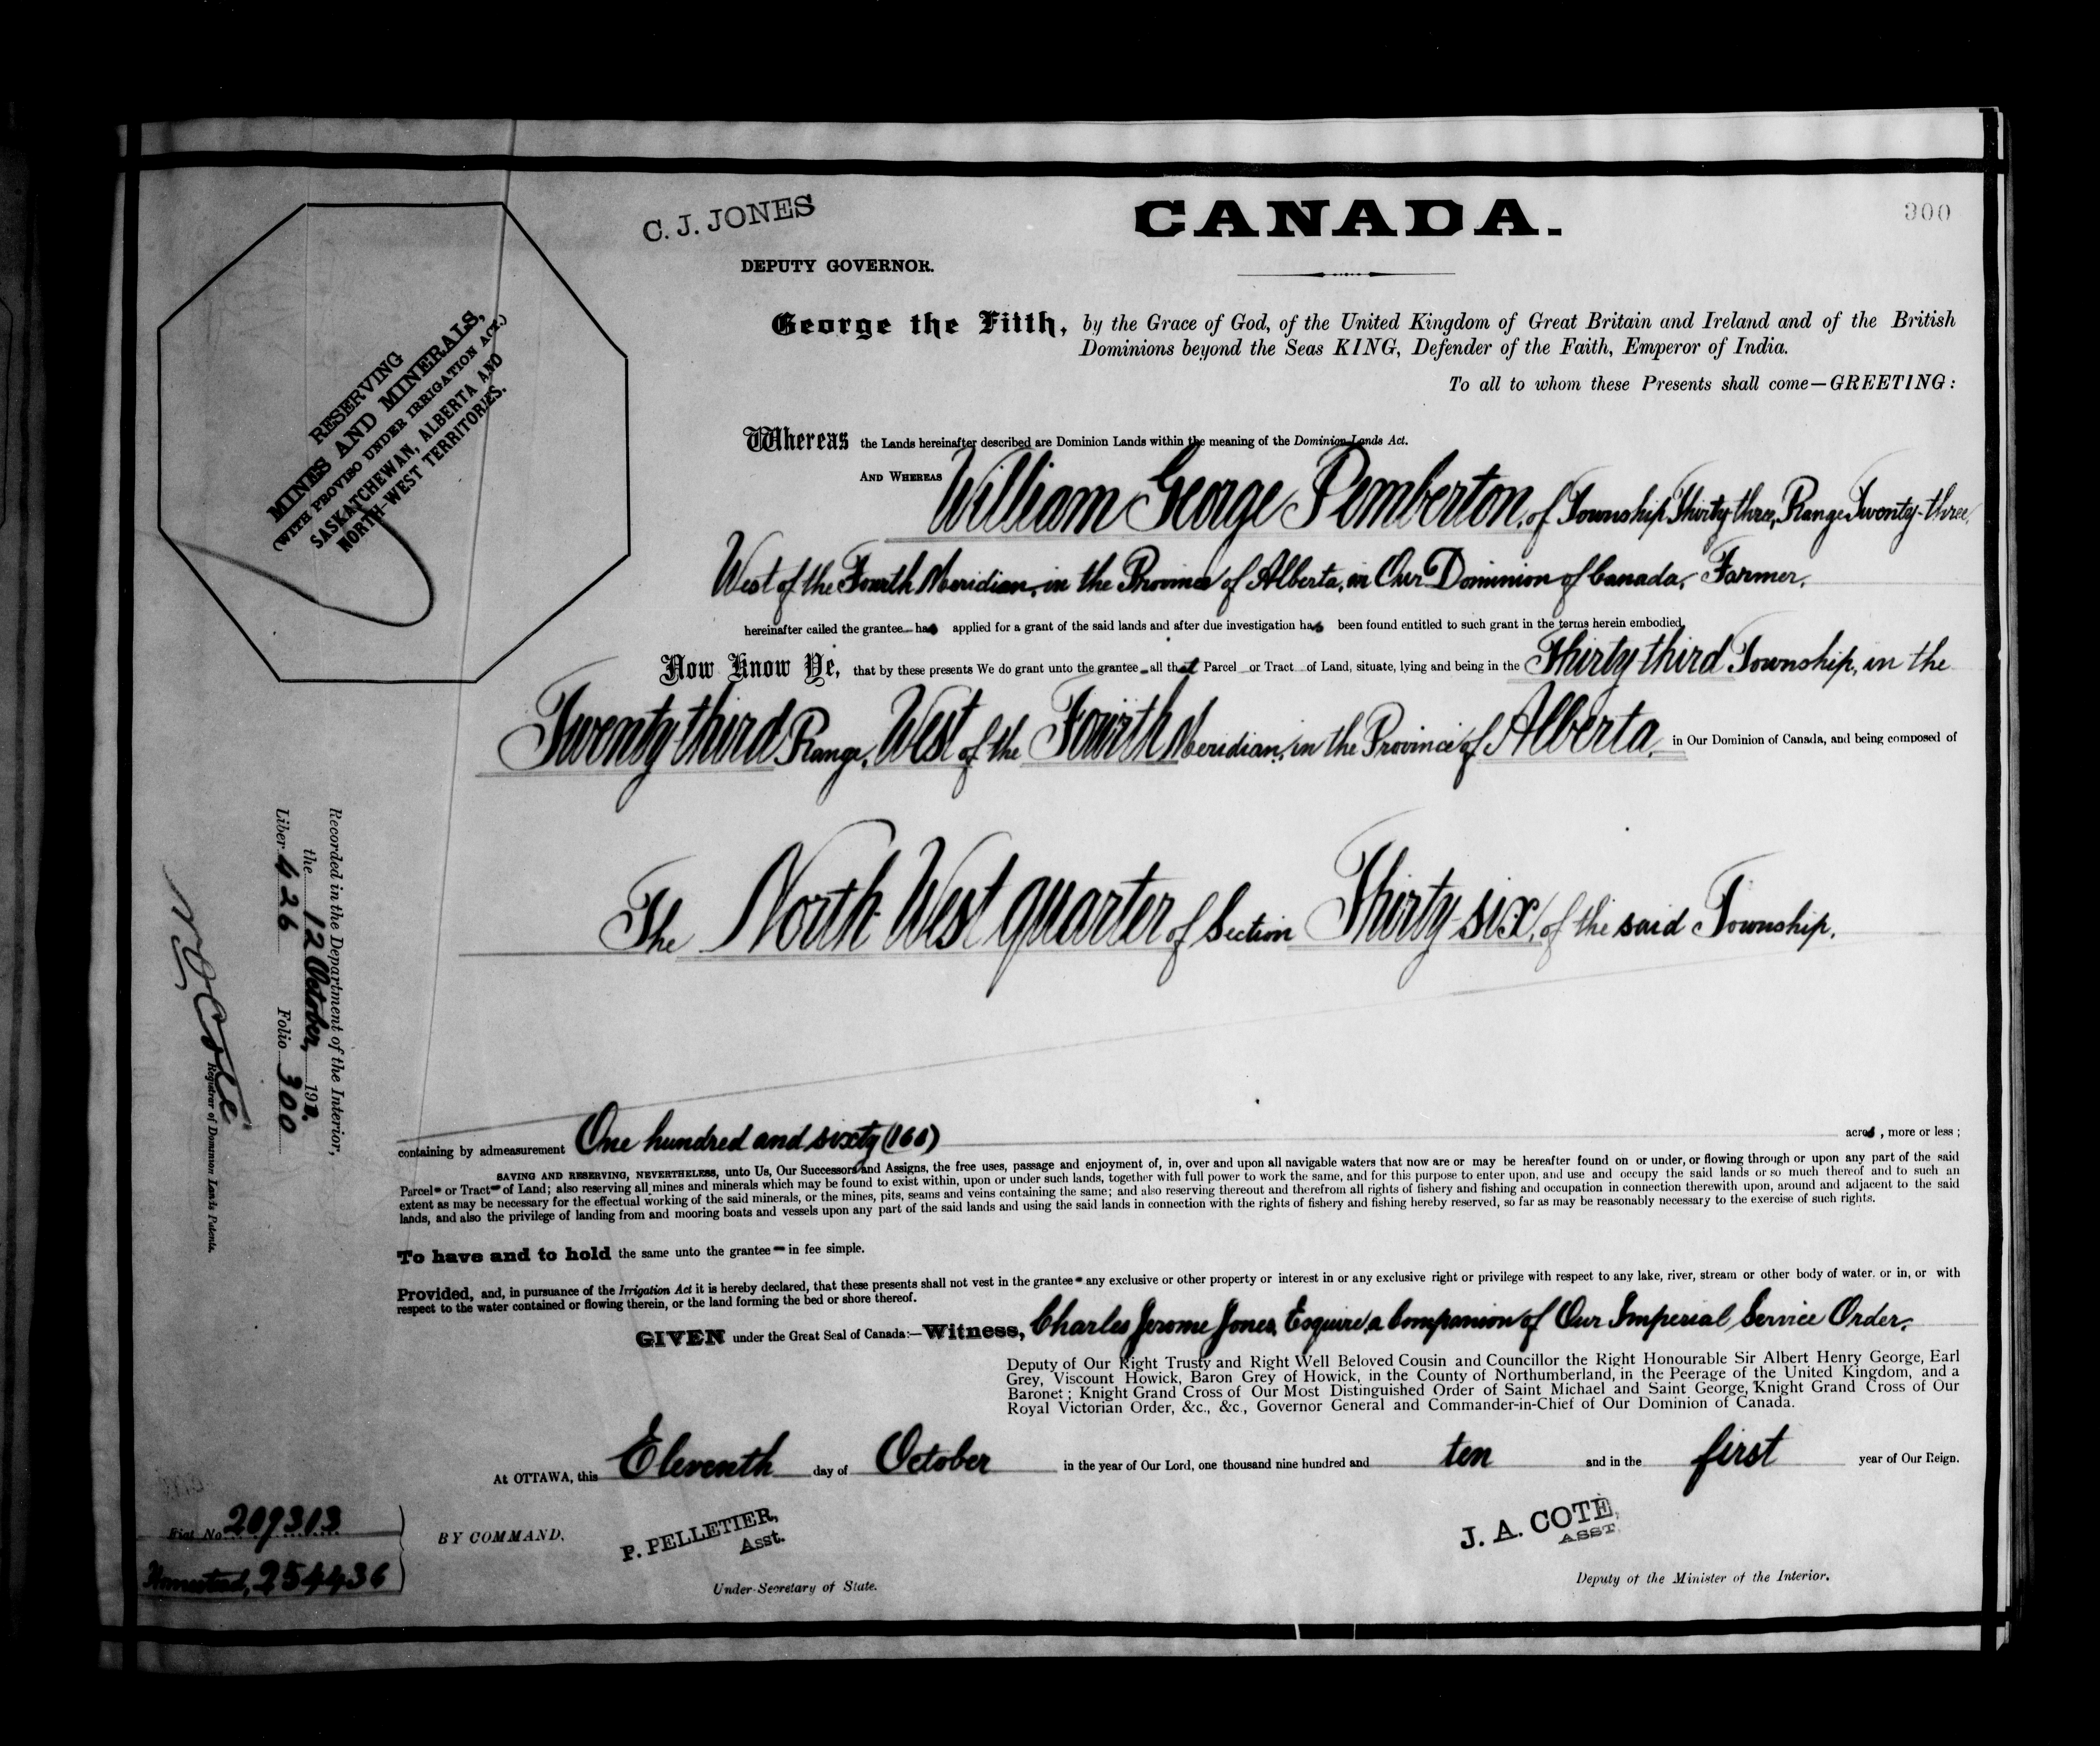 300
C. J. JONES
CANADA.
DEPUTY GOVERNOR.
RESERVING
MINES AND MINERALS,
(WITH PROVISO UNDER IRRIGATION ACT.)
SASKATCHEWAN, ALBERTA AND
NORTH-WEST TERRITORIES.
George the Fifth, by the Grace of God, of the United Kingdom of Great Britain and Ireland and of the British
Dominions beyond the Seas KING, Defender of the Faith, Emperor of India.
To all to whom these Presents shall come—GREETING:
Whereas the Lands hereinafter described are Dominion Lands within the meaning of the Dominion Lands Act.
AND WHEREAS William George Pemberton, of Township Thirty-three, Range Twenty-three,
West of the Fourth Meridian, in the Province of Alberta, in Our Dominion of Canada, Farmer,
hereinafter called the grantee has applied for a grant of the said lands and after due investigation has been found entitled to such grant in the terms herein embodied,
Now Know Ye, that by these presents We do grant unto the grantee all that Parcel or Tract of Land, situate, lying and being in the Thirty third Township, in the
Twenty-third Range, West of the Fourth Meridian, in the Province of Alberta, in Our Dominion of Canada, and being composed of
The North West quarter of Section Thirty-six, of the said Township.
Recorded in the Department of the Interior,
the 12 October, 191
Liber 426 Folio 300
Registrar of Dominion Lands Patents.
containing by admeasurement One hundred and sixty (160) acres, more or less;
SAVING AND RESERVING, NEVERTHELESS, unto Us, Our Successors and Assigns, the free uses, passage and enjoyment of, in, over and upon all navigable waters that now are or may be hereafter found on or under, or flowing through or upon any part of the said
Parcel or Tract of Land; also reserving all mines and minerals which may be found to exist within, upon or under such lands, together with full power to work the same, and for this purpose to enter upon, and use and occupy the said lands or so much thereof and to such an
extent as may be necessary for the effectual working of the said minerals, or the mines, pits, seams and veins containing the same; and also reserving thereout and therefrom all rights of fishery and fishing and occupation in connection therewith upon, around and adjacent to the said
lands, and also the privilege of landing from and mooring boats and vessels upon any part of the said lands and using the said lands in connection with the rights of fishery and fishing hereby reserved, so far as may be reasonably necessary to the exercise of such rights.
To have and to hold the same unto the grantee in fee simple.
Provided, and, in pursuance of the Irrigation Act it is hereby declared, that these presents shall not vest in the grantee any exclusive or other property or interest in or any exclusive right or privilege with respect to any lake, river, stream or other body of water. or in, or with
respect to the water contained or flowing therein, or the land forming the bed or shore thereof.
GIVEN under the Great Seal of Canada:—Witness, Charles Jerome Jones, Esquire, a Companion of Our Imperial Service Order,
Deputy of Our Right Trusty and Right Well Beloved Cousin and Councillor the Right Honourable Sir Albert Henry George, Earl
Grey, Viscount Howick, Baron Grey of Howick, in the County of Northumberland, in the Peerage of the United Kingdom, and a
Baronet; Knight Grand Cross of Our Most Distinguished Order of Saint Michael and Saint George, Knight Grand Cross of Our
Royal Victorian Order, &c., &c., Governor General and Commander-in-Chief of Our Dominion of Canada.
At OTTAWA, this Eleventh day of October in the year of Our Lord, one thousand nine hundred and ten and in the first year of Our Reign.
Fiat No. 209313
Homestead, 254436
BY COMMAND,
P. PELLETIER,
Asst.
Under-Secretary of State.
J. A. COTÉ,
ASST.
Deputy of the Minister of the Interior.